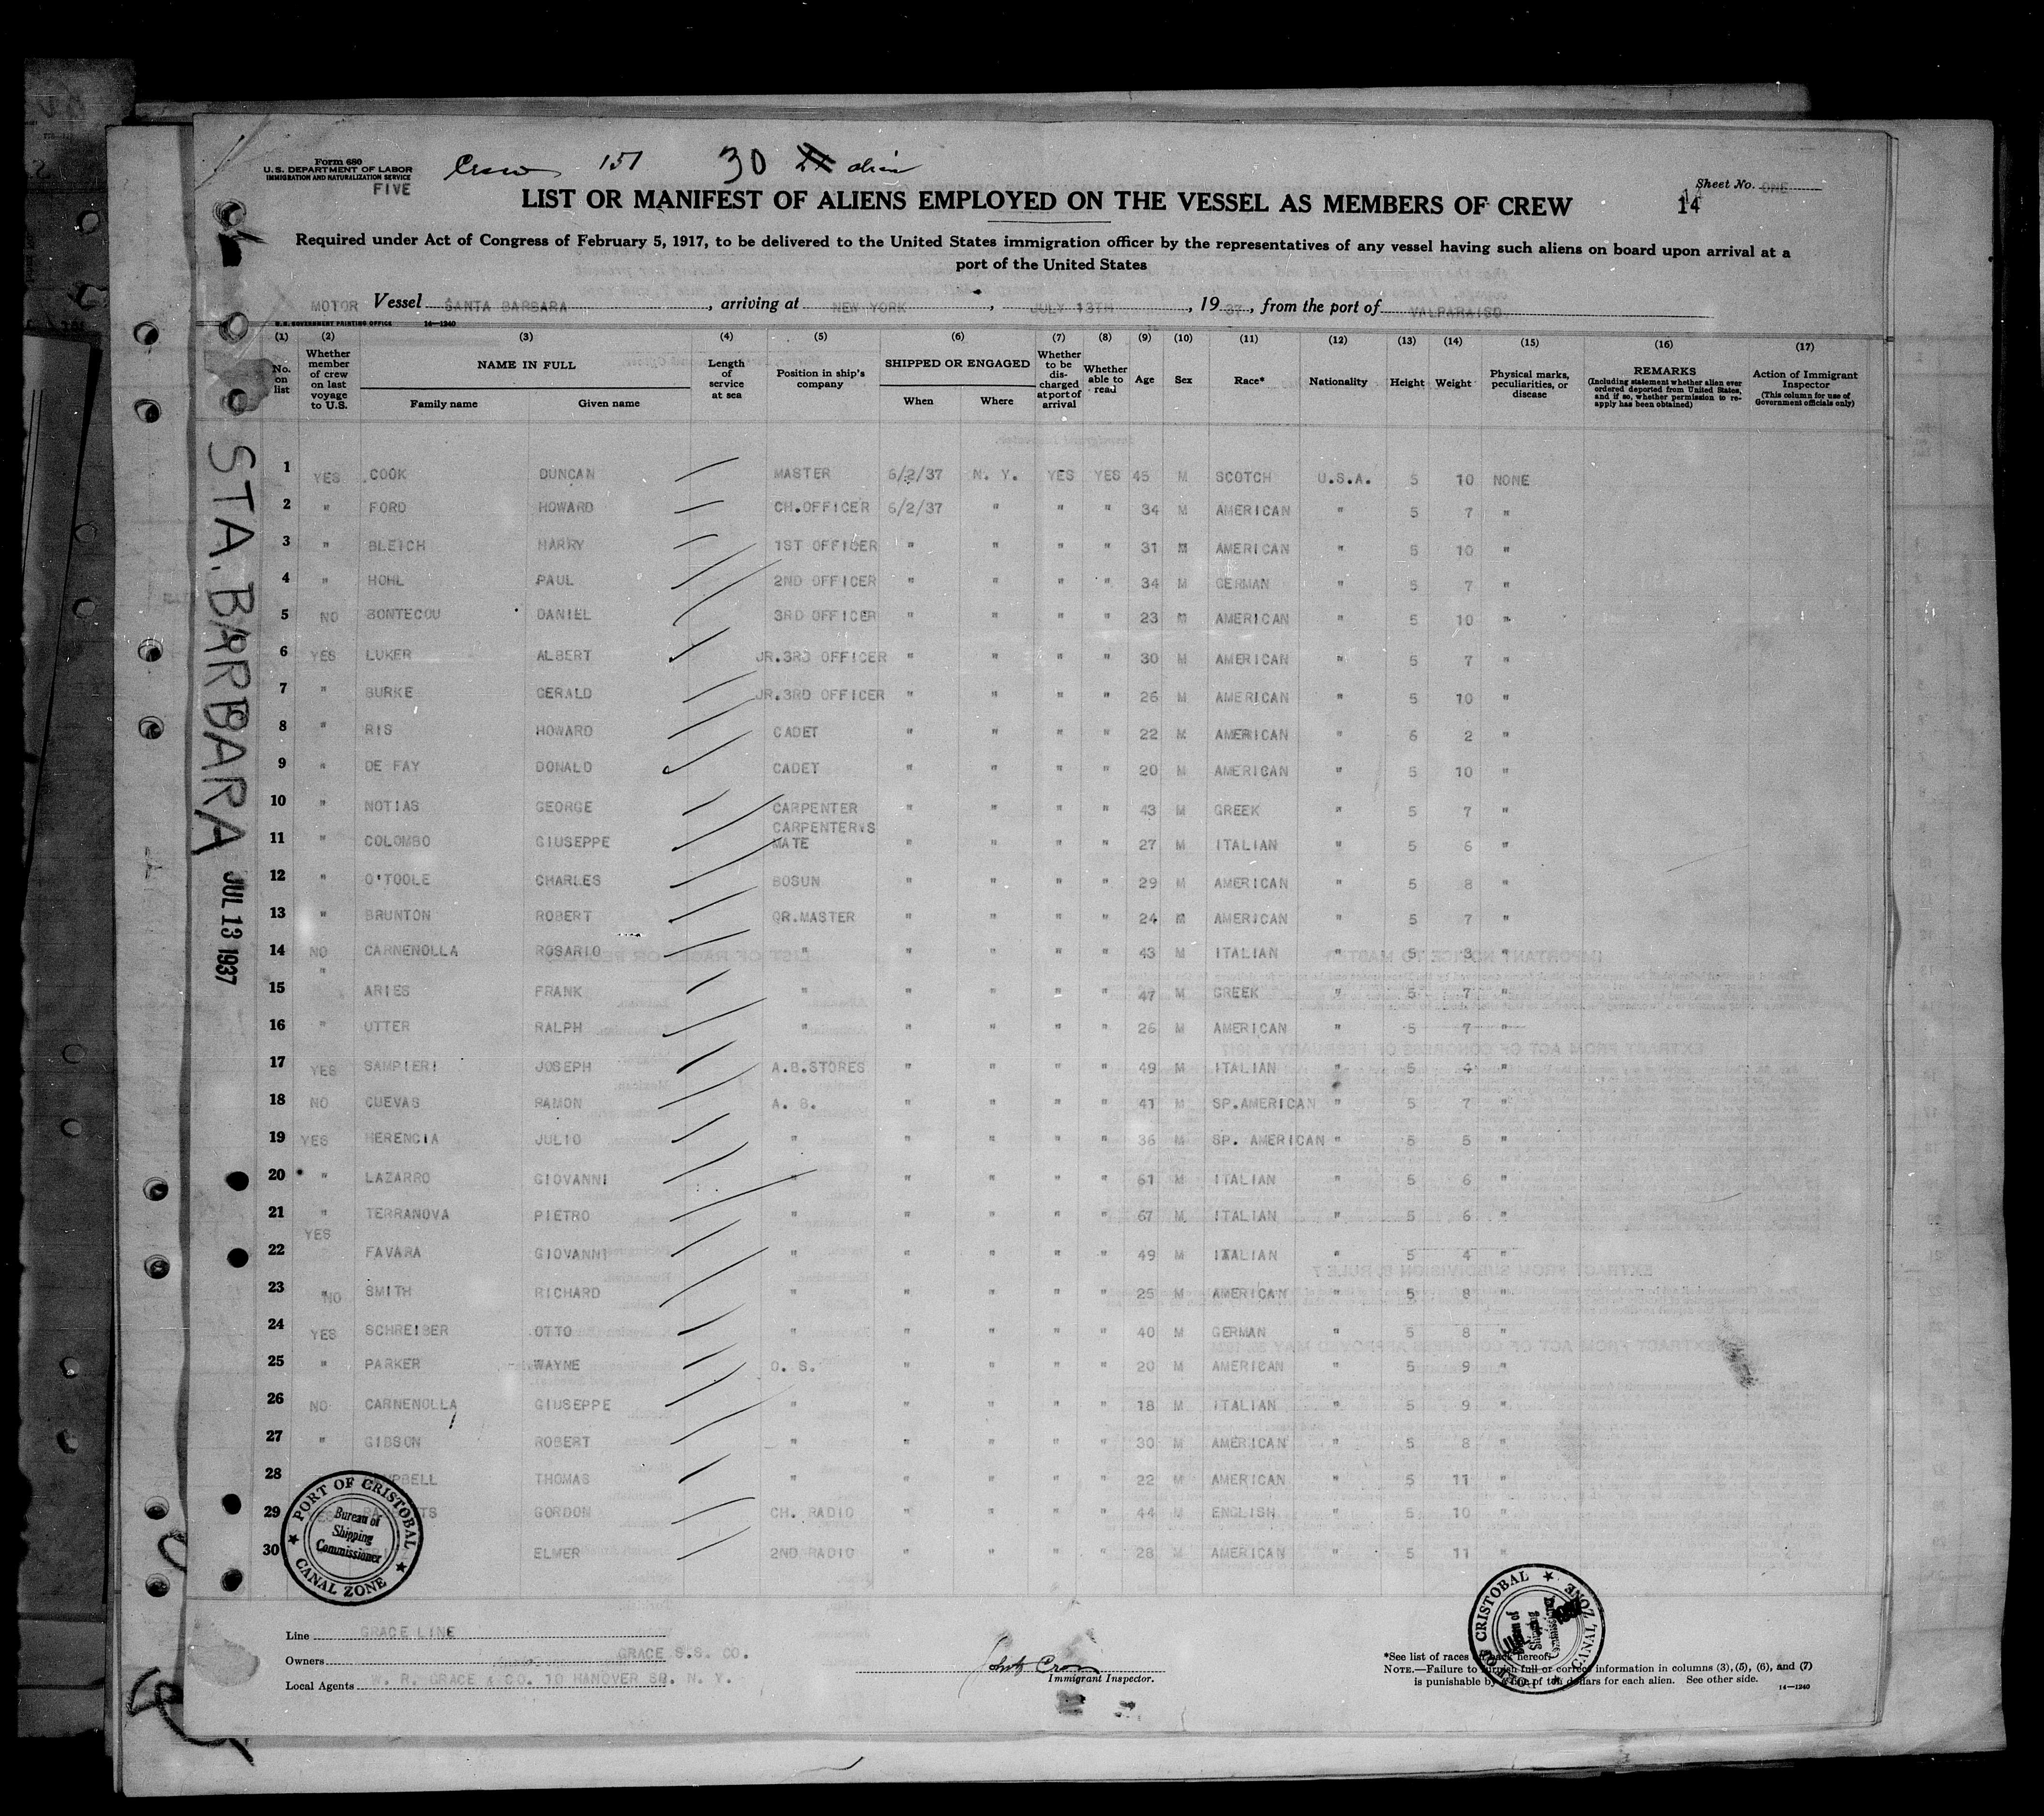 Form 680
U.S. DEPARTMENT OF LABOR
IMMIGRATION AND NATURALIZATION SERVICE
FIVE
Crew 151 30
Sheet No. ONE
14
LIST OR MANIFEST OF ALIENS EMPLOYED ON THE VESSEL AS MEMBERS OF CREW
Required under Act of Congress of February 5, 1917, to be delivered to the United States immigration officer by the representatives of any vessel having such aliens on board upon arrival at a
port of the United States
MOTOR Vessel SANTA BARBARA, arriving at NEW YORK, JULY 13TH, 1937, from the port of VALPARAISO
U.S. GOVERNMENT PRINTING OFFICE 14—1240
(1) (2) (3) (4) (5) (6) (7) (8) (9) (10) (11) (12) (13) (14) (15) (16) (17)
No. on list
Whether member of crew on last voyage to U.S.
NAME IN FULL
Family name Given name
Length of service at sea
Position in ship's company
SHIPPED OR ENGAGED
When Where
Whether to be discharged at port of arrival
Whether able to read
Age
Sex
Race*
Nationality
Height
Weight
Physical marks, peculiarities, or disease
REMARKS
(Including statement whether alien ever ordered deported from United States, and if so, whether permission to re-apply has been obtained)
Action of Immigrant Inspector
(This column for use of Government officials only)
1 YES COOK DUNCAN MASTER 6/2/37 N. Y. YES YES 45 M SCOTCH U.S.A. 5 10 NONE
2 " FORD HOWARD CH.OFFICER 6/2/37 " " " 34 M AMERICAN " 5 7 "
3 " BLEICH HARRY 1ST OFFICER " " " " 31 M AMERICAN " 5 10 "
4 " HOHL PAUL 2ND OFFICER " " " " 34 M GERMAN " 5 7 "
5 NO BONTECOU DANIEL 3RD OFFICER " " " " 23 M AMERICAN " 5 10 "
6 YES LUKER ALBERT JR.3RD OFFICER " " " " 30 M AMERICAN " 5 7 "
7 " BURKE GERALD JR.3RD OFFICER " " " " 26 M AMERICAN " 5 10 "
8 " RIS HOWARD CADET " " " " 22 M AMERICAN " 6 2 "
9 " DE FAY DONALD CADET " " " " 20 M AMERICAN " 5 10 "
10 " NOTIAS GEORGE CARPENTER " " " " 43 M GREEK " 5 7 "
11 " COLOMBO GIUSEPPE CARPENTER'S MATE " " " " 27 M ITALIAN " 5 6 "
12 " O'TOOLE CHARLES BOSUN " " " " 29 M AMERICAN " 5 8 "
13 " BRUNTON ROBERT QR.MASTER " " " " 24 M AMERICAN " 5 7 "
14 NO CARNENOLLA ROSARIO " " " " " 43 M ITALIAN " 5 3 "
15 " ARIES FRANK " " " " " 47 M GREEK " 5 7 "
16 " UTTER RALPH " " " " " 26 M AMERICAN " 5 7 "
17 YES SAMPIERI JOSEPH A.B.STORES " " " " 49 M ITALIAN " 5 4 "
18 NO CUEVAS RAMON A. B. " " " " 41 M SP.AMERICAN " 5 7 "
19 YES HERENCIA JULIO " " " " " 36 M SP. AMERICAN " 5 5 "
20 " LAZARRO GIOVANNI " " " " " 61 M ITALIAN " 5 6 "
21 " TERRANOVA PIETRO " " " " " 67 M ITALIAN " 5 6 "
22 YES FAVARA GIOVANNI " " " " " 49 M ITALIAN " 5 4 "
23 NO SMITH RICHARD " " " " " 25 M AMERICAN " 5 8 "
24 YES SCHREIBER OTTO " " " " " 40 M GERMAN " 5 8 "
25 " PARKER WAYNE O. S. " " " " 20 M AMERICAN " 5 9 "
26 NO CARNENOLLA GIUSEPPE " " " " " 18 M ITALIAN " 5 9 "
27 " GIBSON ROBERT " " " " " 30 M AMERICAN " 5 8 "
28 THOMAS " " " " " 22 M AMERICAN " 5 11 "
29 GORDON CH. RADIO " " " " 44 M ENGLISH " 5 10 "
30 ELMER 2ND RADIO " " " " 28 M AMERICAN " 5 11 "
STA. BARBARA
JUL 13 1937
PORT OF CRISTOBAL
Bureau of
Shipping
Commissioner
CANAL ZONE
Line GRACE LINE
Owners GRACE S.S. CO.
Local Agents W. R. GRACE & CO. 10 HANOVER SQ. N. Y.
Immigrant Inspector.
PORT OF CRISTOBAL
CANAL ZONE
*See list of races on back hereof.
NOTE.—Failure to furnish full or correct information in columns (3), (5), (6), and (7)
is punishable by a fine of ten dollars for each alien. See other side.
14—1240